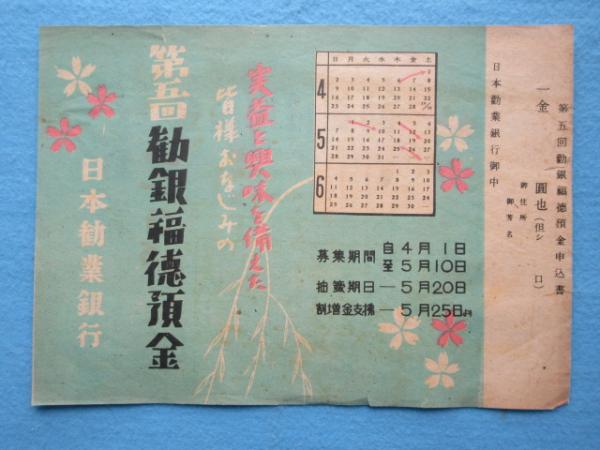 第五回勸銀福德預金申込書
一金　圓也（但シ　口）
御住所
御芳名
日本勸業銀行御中
日 月 火 水 木 金 土
4
1
2 3 4 5 6 7 8
9 10 11 12 13 14 15
16 17 18 19 20 21 22
5
1 2 3 4 5 6
7 8 9 10 11 12 13
14 15 16 17 18 19 20
21 22 23 24 25 26 27
6
1 2 3
4 5 6 7 8 9 10
11 12 13 14 15 16 17
18 19 20 21 22 23 24
25 26 27 28 29 30
募集期間 自 4月1日
至 5月10日
抽籤期日 — 5月20日
割增金支拂 — 5月25日ヨリ
実益と興味を備えた
皆様おなじみの
第五回勸銀福德預金
日本勸業銀行